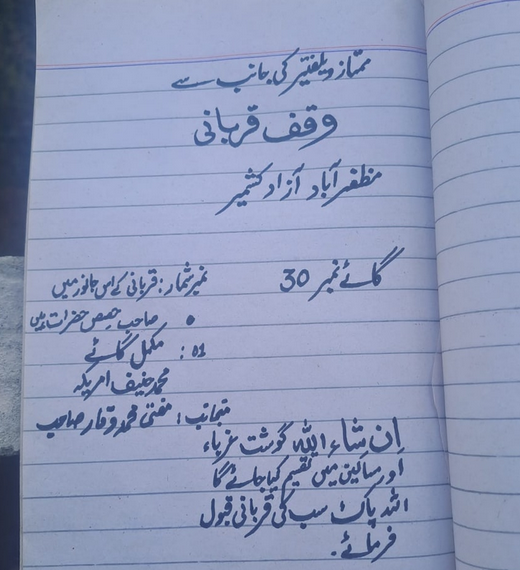 ممتاز ویلفئیر کی جانب سے
وقف قربانی
مظفرآباد آزاد کشمیر
گائے نمبر 30
نمبر شمار: قربانی کے اس جانور میں
صاحب حصص حضرات ہیں
01: مکمل گائے
محمد حنیف امریکہ
منجانب: مفتی محمد وقار صاحب
ان شاء اللہ گوشت غرباء
اور مساکین میں تقسیم کیا جائے گا
اللہ پاک سب کی قربانی قبول
فرمائے.